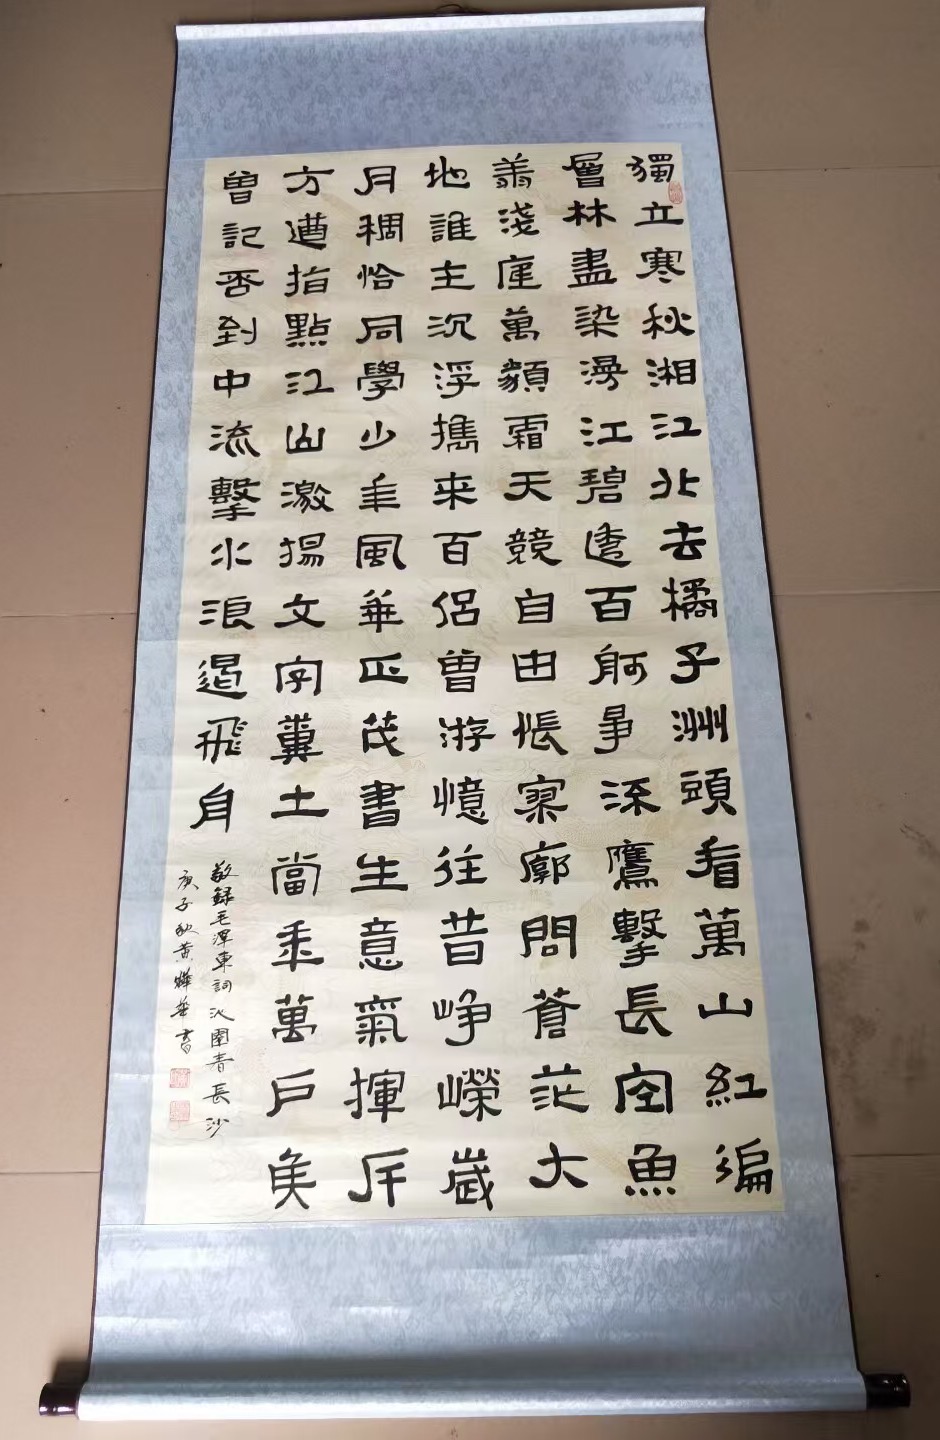 獨立寒秋湘江北去橘子洲頭看萬山紅徧
層林盡染漫江碧透百舸爭流鷹擊長空魚
翔淺底萬類霜天競自由悵寥廓問蒼茫大
地誰主沉浮攜来百侶曾游憶往昔崢嶸歲
月稠恰同學少年風華正茂書生意氣揮斥
方遒指點江山激揚文字糞土當年萬戶侯
曾記否到中流擊水浪遏飛舟
敬録毛澤東詞沁園春長沙
庚子秋黃燁華書